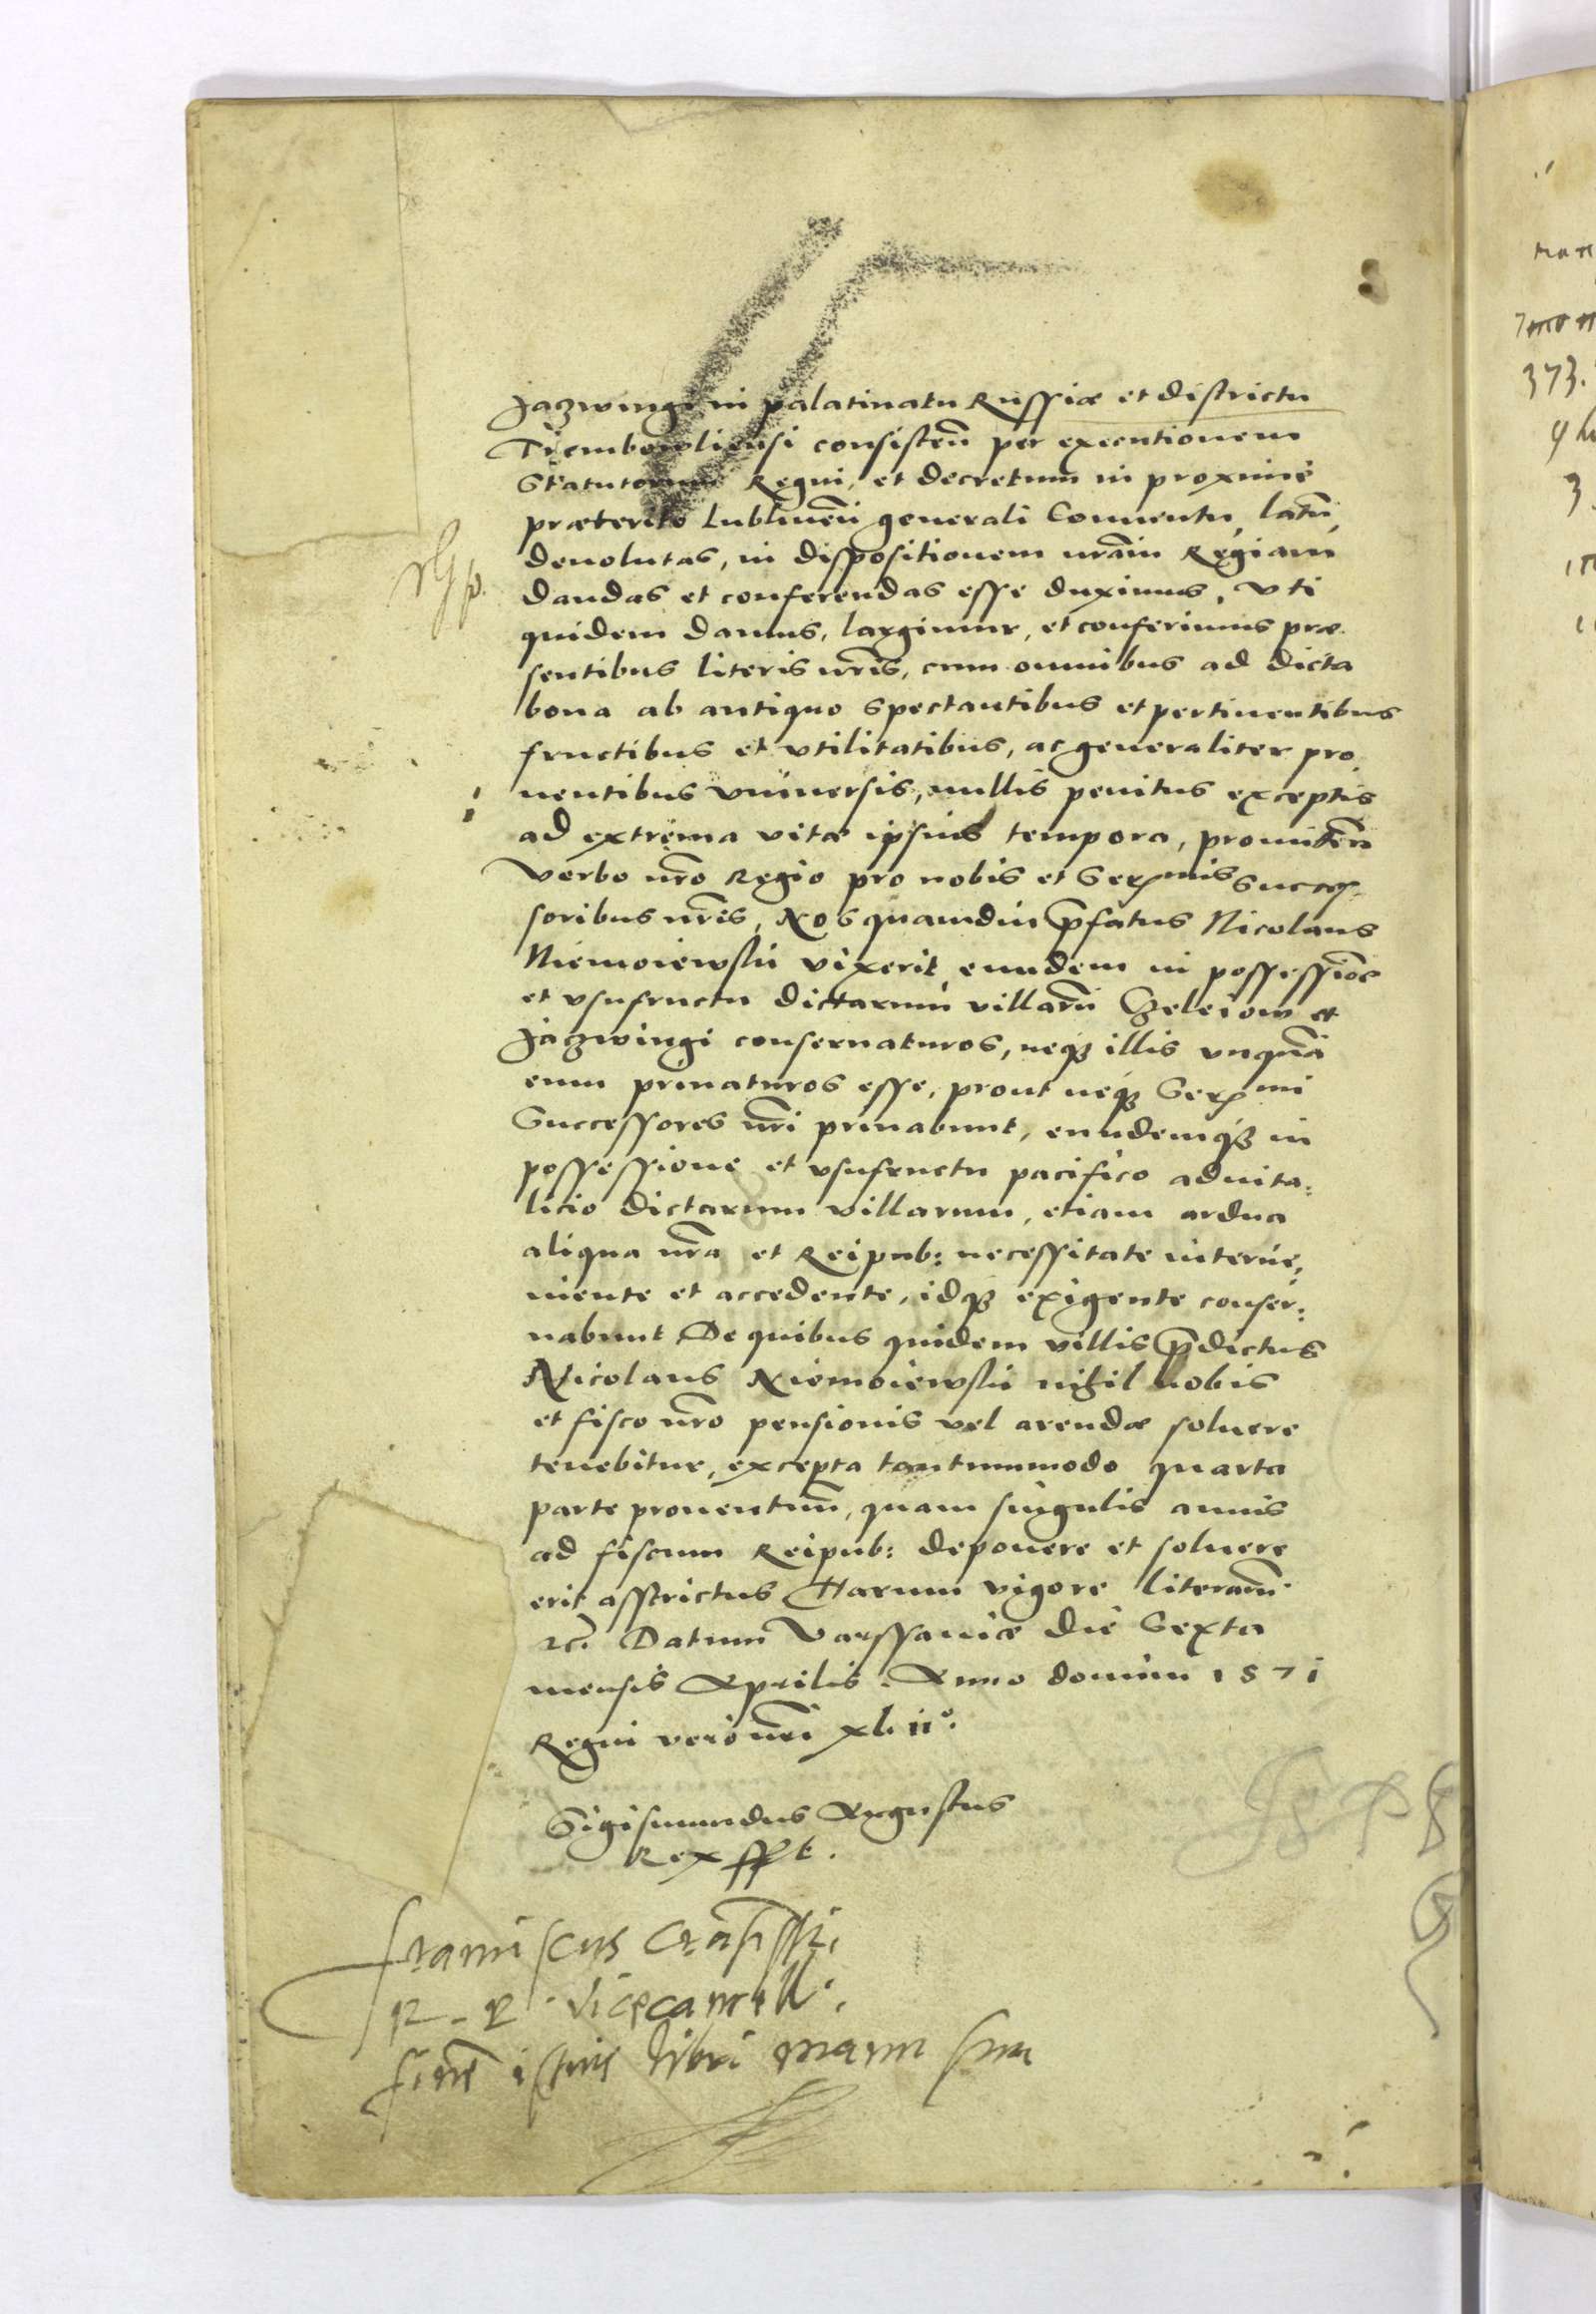 Jazwingi in palatinatu Russiæ et districtu
Trembowliensi consisteñ per executionem
Statutorum Regni, et decretum in proxime
præterito Lublineñ generali Conuentu, latũ,
deuolutas, in dispositionem nr̃am Regiam
dandas et conferendas esse duximus, vti
quidem damus, largimur, et conferimus præ
sentibus literis nr̃is, cum omnibus ad dicta
bona ab antiquo spectantibus et pertinentibus
fructibus et vtilitatibus, ac generaliter pro,
uentibus vniuersis, nullis penitus exceptis
ad extrema vitæ ipsius tempora, promitteñ
Verbo nr̃o Regio pro nobis et Sermis Succes,
soribus nr̃is, Nos quamdiu p̃fatus Nicolaus
Niemoiewskii vixerit, eundem in possessiõe
et vsufructu dictarum villarũ Czeleiow et
Jazwingi conseruaturos, neqȝ illis vnquã
eum priuaturos esse, prout neqȝ Sermi
Successores nr̃i priuabunt, eundemqȝ in
possessione et vsufructu pacifico aduita:
licio dictarum villarum, etiam ardua
aliqua nr̃a et Reipub: necessitate interue,
niente et accedente, idqȝ exigente conser:
uabunt De quibus quidem villis p̃dictus
Nicolaus Niemoiewskii nihil nobis
et fisco nr̃o pensionis vel arendæ soluere
tenebitur, excepta tantummodo quarta
parte prouentuũ, quam singulis annis
ad fiscum Reipub: deponere et soluere
erit asstrictus Harum vigore literarũ
etc̃. Datum Varssauiæ die Sexta
mensis Aprilis. Anno domini 1571
Regni vero nr̃i xlii°.
Sigismundus Augustus
Rex sspt.
franciscus Crasiñski
R. P. vicecancell.
finẽ istius libri manu sua